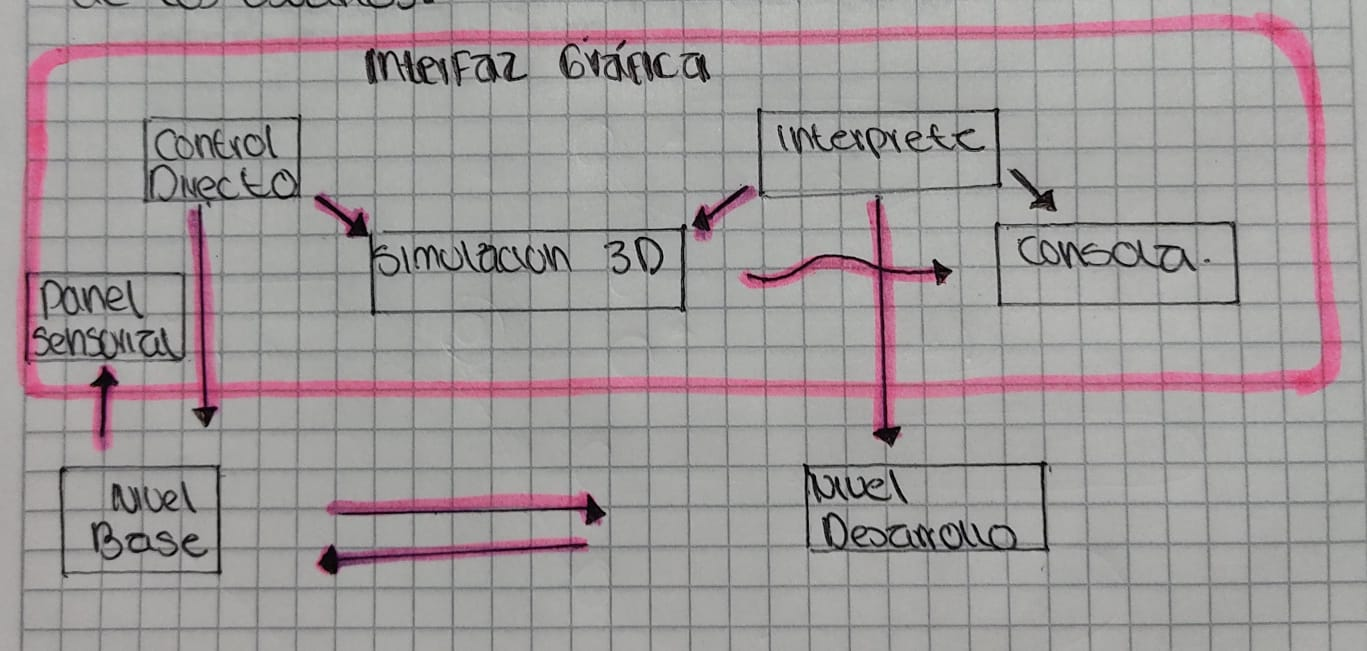 Interfaz Gráfica
Control
Directo
Interprete
Simulacion 3D
Consola.
Panel
Sensorial
Nivel
Base
Nivel
Desarrollo